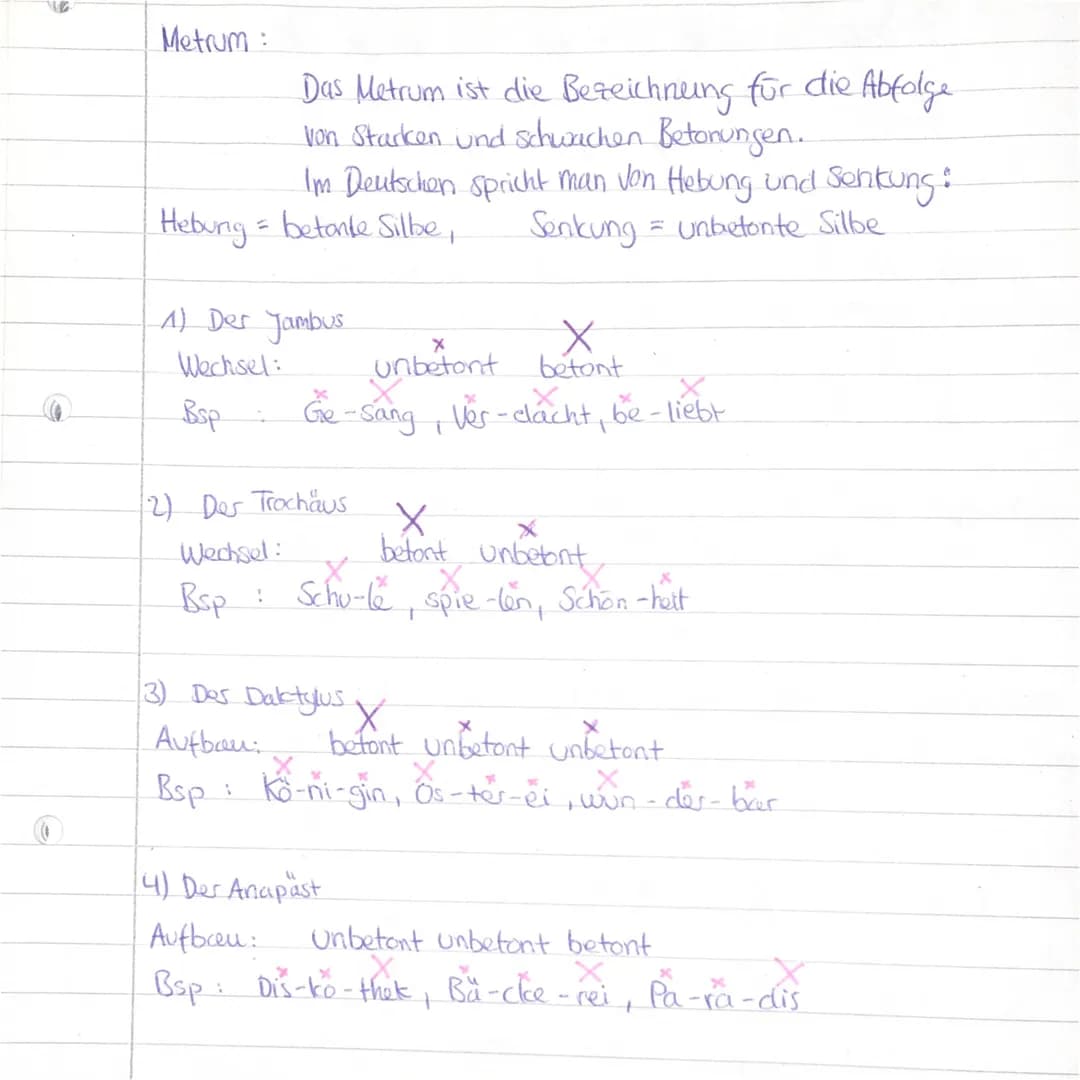 Metrum :
Das Metrum ist die Bezeichnung für die Abfolge
von Starken und schwachen Betonungen.
Im Deutschen spricht man von Hebung und Senkung:
Hebung = betonte Silbe, Senkung = unbetonte Silbe
1) Der Jambus
x X
Wechsel: unbetont betont
x X x X x X
Bsp : Ge-sang, Ver-dacht, be-liebt
2) Der Trochäus
X x
Wechsel: betont unbetont
X x X x X x
Bsp : Schu-le, spie-len, Schön-heit
3) Der Daktylus
X x x
Aufbau: betont unbetont unbetont
X x x X x x X x x
Bsp : Kö-ni-gin, Os-ter-ei, wun-der-bar
4) Der Anapäst
Aufbau: unbetont unbetont betont
x x X x x X x x X
Bsp : Dis-ko-thek, Bä-cke-rei, Pa-ra-dis